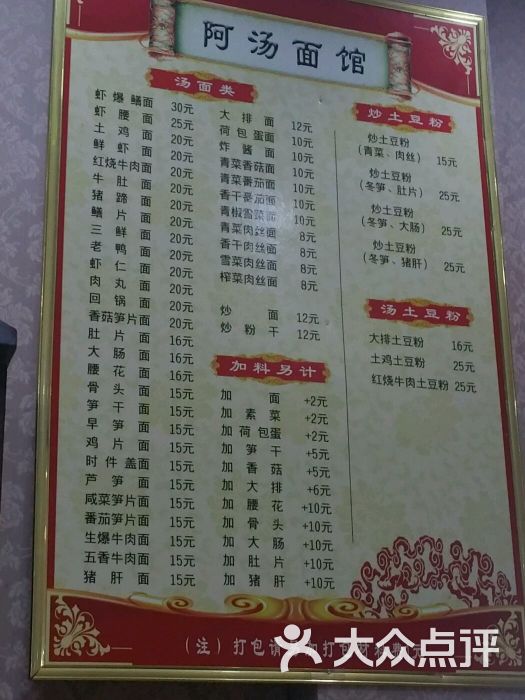 阿汤面馆
汤面类
虾爆鳝面 30元
虾腰面 25元
土鸡面 20元
鲜虾面 20元
红烧牛肉面 20元
牛肚面 20元
猪蹄面 20元
鳝片面 20元
三鲜面 20元
老鸭面 20元
虾仁面 20元
肉丸面 20元
回锅面 20元
香菇笋片面 20元
肚片面 16元
大肠面 16元
腰花面 16元
骨头面 15元
笋干面 15元
早笋面 15元
鸡片面 15元
时件盖面 15元
芦笋面 15元
咸菜笋片面 15元
番茄笋片面 15元
生爆牛肉面 15元
五香牛肉面 15元
猪肝面 15元
大排面 12元
荷包蛋面 10元
炸酱面 10元
青菜香菇面 10元
青菜番茄面 10元
香干番茄面 10元
青椒雪菜面 10元
青菜肉丝面 8元
香干肉丝面 8元
雪菜肉丝面 8元
榨菜肉丝面 8元
炒面 12元
炒粉干 12元
加料另计
加面 +2元
加素菜 +2元
加荷包蛋 +2元
加笋干 +5元
加香菇 +5元
加大排 +6元
加腰花 +10元
加骨头 +10元
加大肠 +10元
加肚片 +10元
加猪肝 +10元
炒土豆粉
炒土豆粉
(青菜、肉丝) 15元
炒土豆粉
(冬笋、肚片) 25元
炒土豆粉
(冬笋、大肠) 25元
炒土豆粉
(冬笋、猪肝) 25元
汤土豆粉
大排土豆粉 16元
土鸡土豆粉 25元
红烧牛肉土豆粉 25元
(注)打包请
加打包
元
大众点评